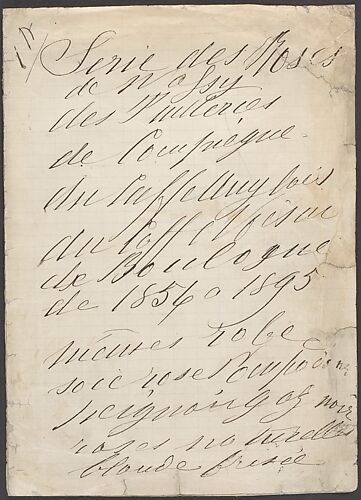 Serie des Roses
de Passy
des Tuileries
de Compiègne
du Caffé Anglois
du Caffé
de Boulogne
de 1856 a 1895
mêmes robe
soie rose Pompadour
peignoir gaz noir
roses naturelles
blonde frisée